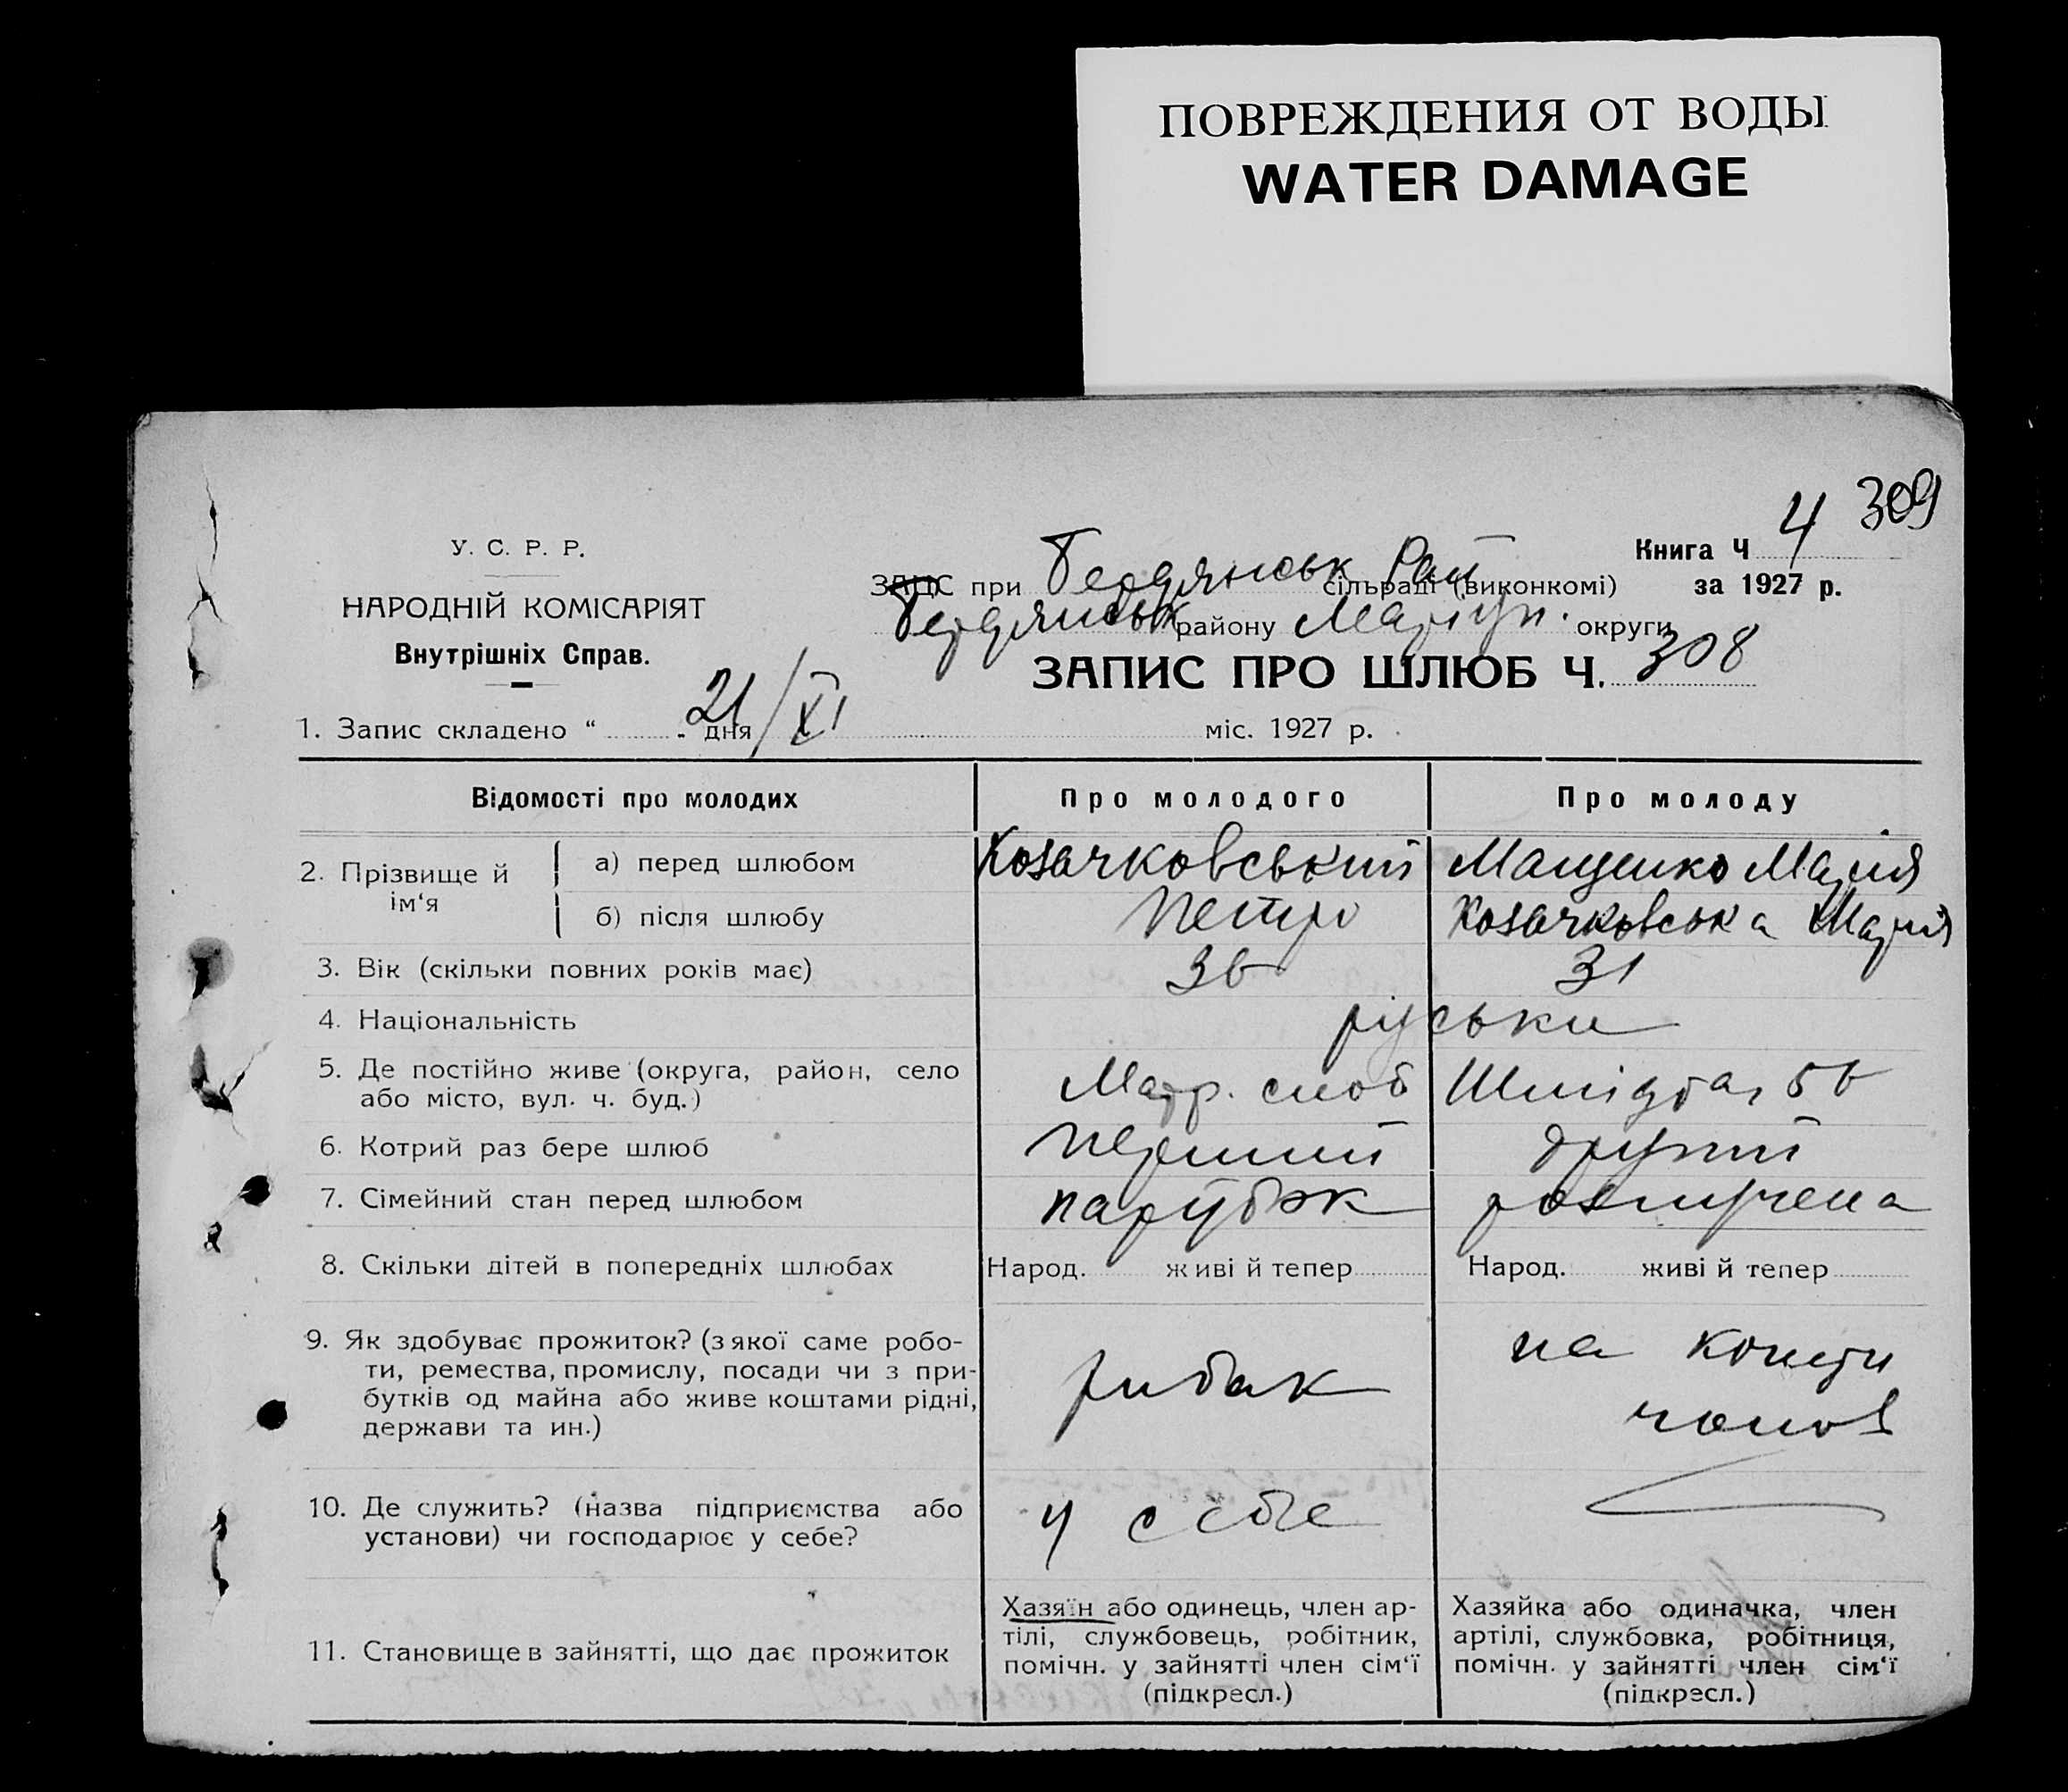 ПОВРЕЖДЕНИЯ ОТ ВОДЫ
WATER DAMAGE
309
У. С. Р. Р.
НАРОДНІЙ КОМІСАРІЯТ
Внутрішніх Справ.
Книга Ч 4
за 1927 р.
ЗАПС при Бердянськ Рай сільраді (виконкомі)
Бердянськ району Маріуп. округи
ЗАПИС ПРО ШЛЮБ Ч. 308
1. Запис складено “ 21 дня /XI міс. 1927 р.
Відомості про молодих Про молодого Про молоду
2. Прізвище й ім‘я
а) перед шлюбом Козачковський Мащенко Марія
б) після шлюбу Петро Козачковська Марія
3. Вік (скільки повних років має) 36 31
4. Національність руськи
5. Де постійно живе (округа, район, село
або місто, вул. ч. буд.) слоб Шмідта, 56
6. Котрий раз бере шлюб перший другий
7. Сімейний стан перед шлюбом парубок розлучена
8. Скільки дітей в попередніх шлюбах Народ. живі й тепер Народ. живі й тепер
9. Як здобуває прожиток? (з якої саме робо-
ти, ремества, промислу, посади чи з при-
бутків од майна або живе коштами рідні,
держави та ин.)
рибак
на кошти
чолов
10. Де служить? (назва підприємства або
установи) чи господарює у себе?
у себе
11. Становище в зайнятті, що дає прожиток
Хазяїн або одинець, член ар-
тілі, службовець, робітник,
помічн. у зайнятті член сім‘ї
(підкресл.)
Хазяйка або одиначка, член
артілі, службовка, робітниця,
помічн. у зайнятті член сім‘ї
(підкресл.)